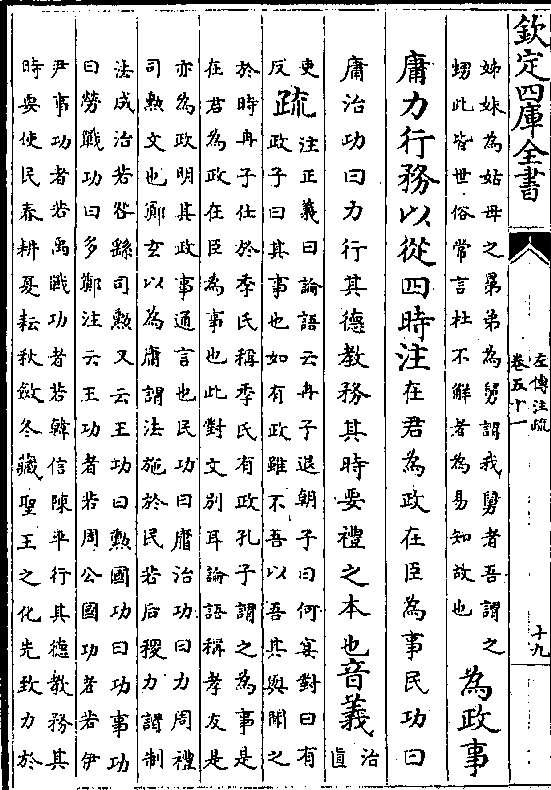 欽定四庫全書
左傳注疏
卷五十一
十九
姊妹為姑母之晜弟為舅謂我舅者吾謂之
甥此皆世俗常言杜不解者為易知故也
為政事
庸力行務以從四時注在君為政在臣為事民功曰
庸治功曰力行其德教務其時要禮之本也音義治
直
吏
反
疏注正義曰論語云冉子退朝子曰何宴對曰有
政子曰其事也如有政雖不吾以吾其與聞之
於時冉子仕於季氏稱季氏有政孔子謂之為事是
在君為政在臣為事也此對文别耳論語稱孝友是
亦為政明其政事通言也民功曰庸治功曰力周禮
司勲文也鄭玄以為庸謂法施於民若后稷力謂制
法成治若咎繇司勲又云王功曰勲國功曰功事功
曰勞戰功曰多鄭注云王功者若周公國功者若伊
尹事功者若禹戰功者若韓信陳平行其德教務其
時要使民春耕夏耘秋斂冬藏聖王之化先致力於